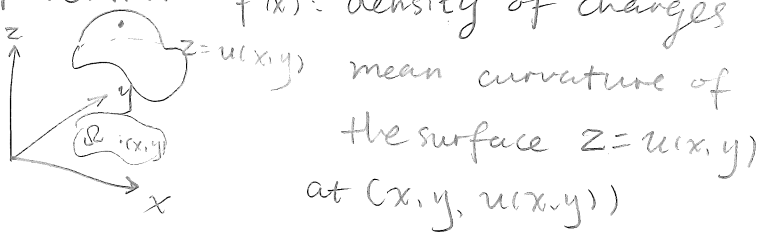 f(x): density of changes
z
z=u(x,y)
mean curvature of
y
the surface z=u(x,y)
Ω ·(x,y)
x
at (x, y, u(x,y))